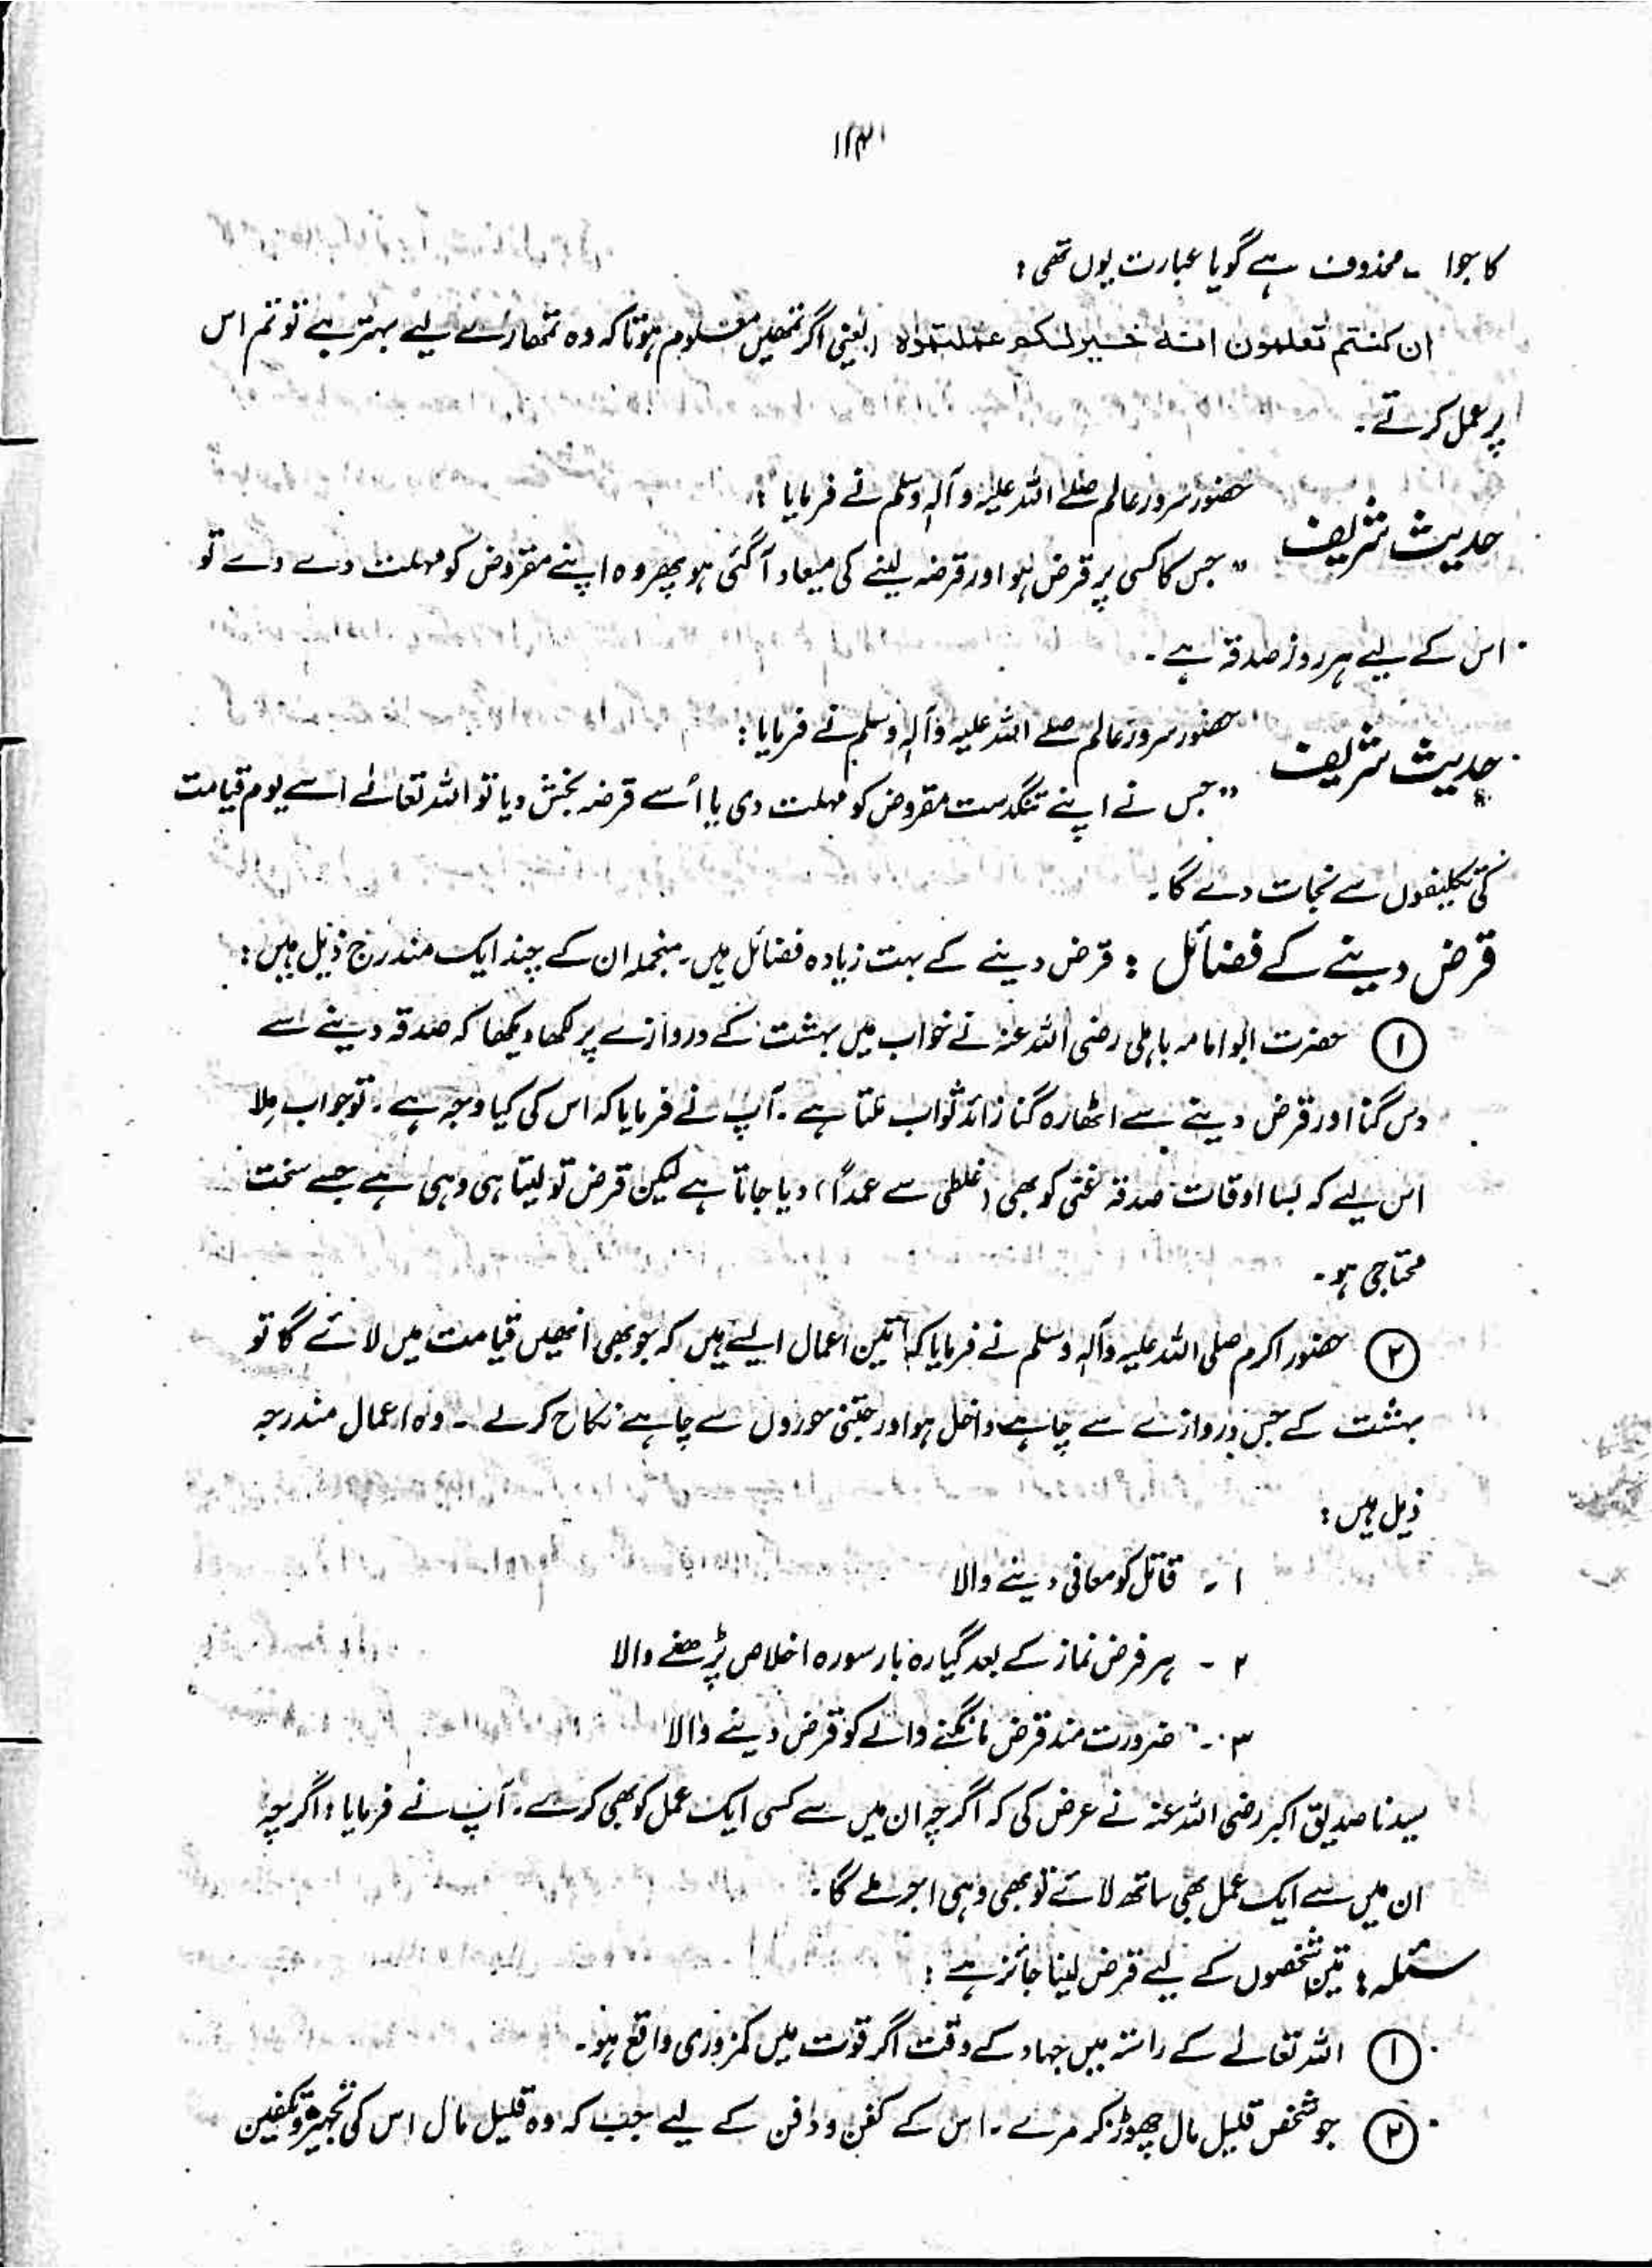 کا جوا ۔ محذوف ہے گویا عبارت یوں تھی :
ان کنتم تعلمون انه خیر لکم عملتموہ (یعنی اگر تمھیں معلوم ہوتا کہ وہ تمھارے لیے بہتر ہے تو تم اس
پر عمل کرتے۔
حضور سرور عالم صلے اللہ علیہ و آلہٖ وسلم نے فرمایا :
حدیث شریف
" جس کا کسی پر قرض ہو اور قرضہ لینے کی میعاد آگئی ہو پھر وہ اپنے مقروض کو مہلت دے دے تو
اس کے لیے ہر روز صدقہ ہے ۔
حضور سرور عالم صلے اللہ علیہ وآلہٖ وسلم نے فرمایا :
حدیث شریف
" جس نے اپنے تنگدست مقروض کو مہلت دی یا اُسے قرضہ بخش دیا تو اللہ تعالےٰ اسے یوم قیامت
کی تکلیفوں سے نجات دے گا ۔
قرض دینے کے فضائل : قرض دینے کے بہت زیادہ فضائل ہیں۔ منجملہ ان کے چند ایک مندرج ذیل ہیں :
① حضرت ابو امامہ باہلی رضی اللہ عنہ نے خواب میں بہشت کے دروازے پر لکھا دیکھا کہ صدقہ دینے سے
دس گنا اور قرض دینے سے اٹھارہ گنا زائد ثواب ملتا ہے ۔ آپ نے فرمایا کہ اس کی کیا وجہ ہے ۔ تو جواب مِلا
اس لیے کہ بسا اوقات صدقہ غنی کو بھی (غلطی سے عمداً) دیا جاتا ہے لیکن قرض تو لیتا ہی وہی ہے جسے سخت
محتاجی ہو ۔
② حضور اکرم صلی اللہ علیہ وآلہٖ وسلم نے فرمایا کہ تین اعمال ایسے ہیں کہ جو بھی انھیں قیامت میں لائے گا تو
بہشت کے جس دروازے سے چاہے داخل ہو اور جتنی حوروں سے چاہے نکاح کرلے ۔ وہ اعمال مندرجہ
ذیل ہیں :
۱ ۔ قاتل کو معافی دینے والا
۲ ۔ ہر فرض نماز کے بعد گیارہ بار سورہ اخلاص پڑھنے والا
۳ ۔ ضرورت مند قرض مانگنے والے کو قرض دینے والا
سیدنا صدیق اکبر رضی اللہ عنہ نے عرض کی کہ اگرچہ ان میں سے کسی ایک عمل کو بھی کرے ۔ آپ نے فرمایا : اگرچہ
ان میں سے ایک عمل بھی ساتھ لائے تو بھی وہی اجر ملے گا ۔
مسئلہ : تین شخصوں کے لیے قرض لینا جائز ہے :
① اللہ تعالےٰ کے راستہ میں جہاد کے وقت اگر قوت میں کمزوری واقع ہو ۔
② جو شخص قلیل مال چھوڑ کر مرے ۔ اس کے کفن و دفن کے لیے جب کہ وہ قلیل مال اس کی تجہیز و تکفین